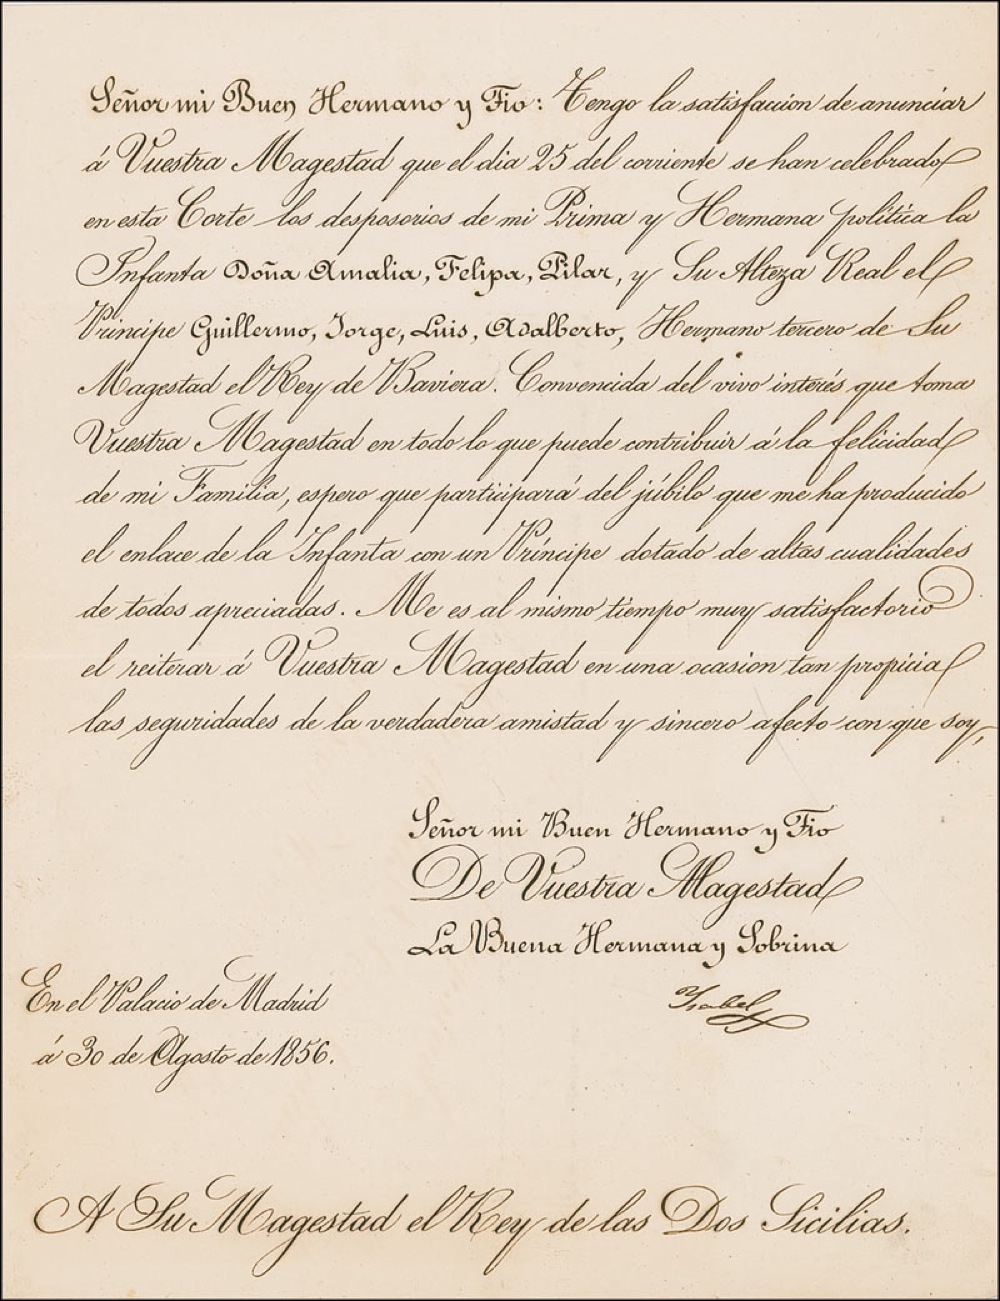 Señor mi Buen Hermano y Tio: Tengo la satisfaccion de anunciar
á Vuestra Magestad que el dia 25 del corriente se han celebrado
en esta Corte los desposorios de mi Prima y Hermana politica la
Infanta Doña Amalia, Felipa, Pilar, y Su Alteza Real el
Príncipe Guillermo, Jorge, Luis, Adalberto, Hermano tercero de Su
Magestad el Rey de Baviera. Convencida del vivo interés que toma
Vuestra Magestad en todo lo que puede contribuir á la felicidad
de mi Familia, espero que participará del júbilo que me ha producido
el enlace de la Infanta con un Príncipe dotado de altas cualidades
de todos apreciadas. Me es al mismo tiempo muy satisfactorio
el reiterar á Vuestra Magestad en una ocasion tan propicia
las seguridades de la verdadera amistad y sincero afecto con que soy,
Señor mi Buen Hermano y Tio
De Vuestra Magestad
La Buena Hermana y Sobrina
Ysabel
En el Palacio de Madrid
á 30 de Agosto de 1856.
A Su Magestad el Rey de las Dos Sicilias.